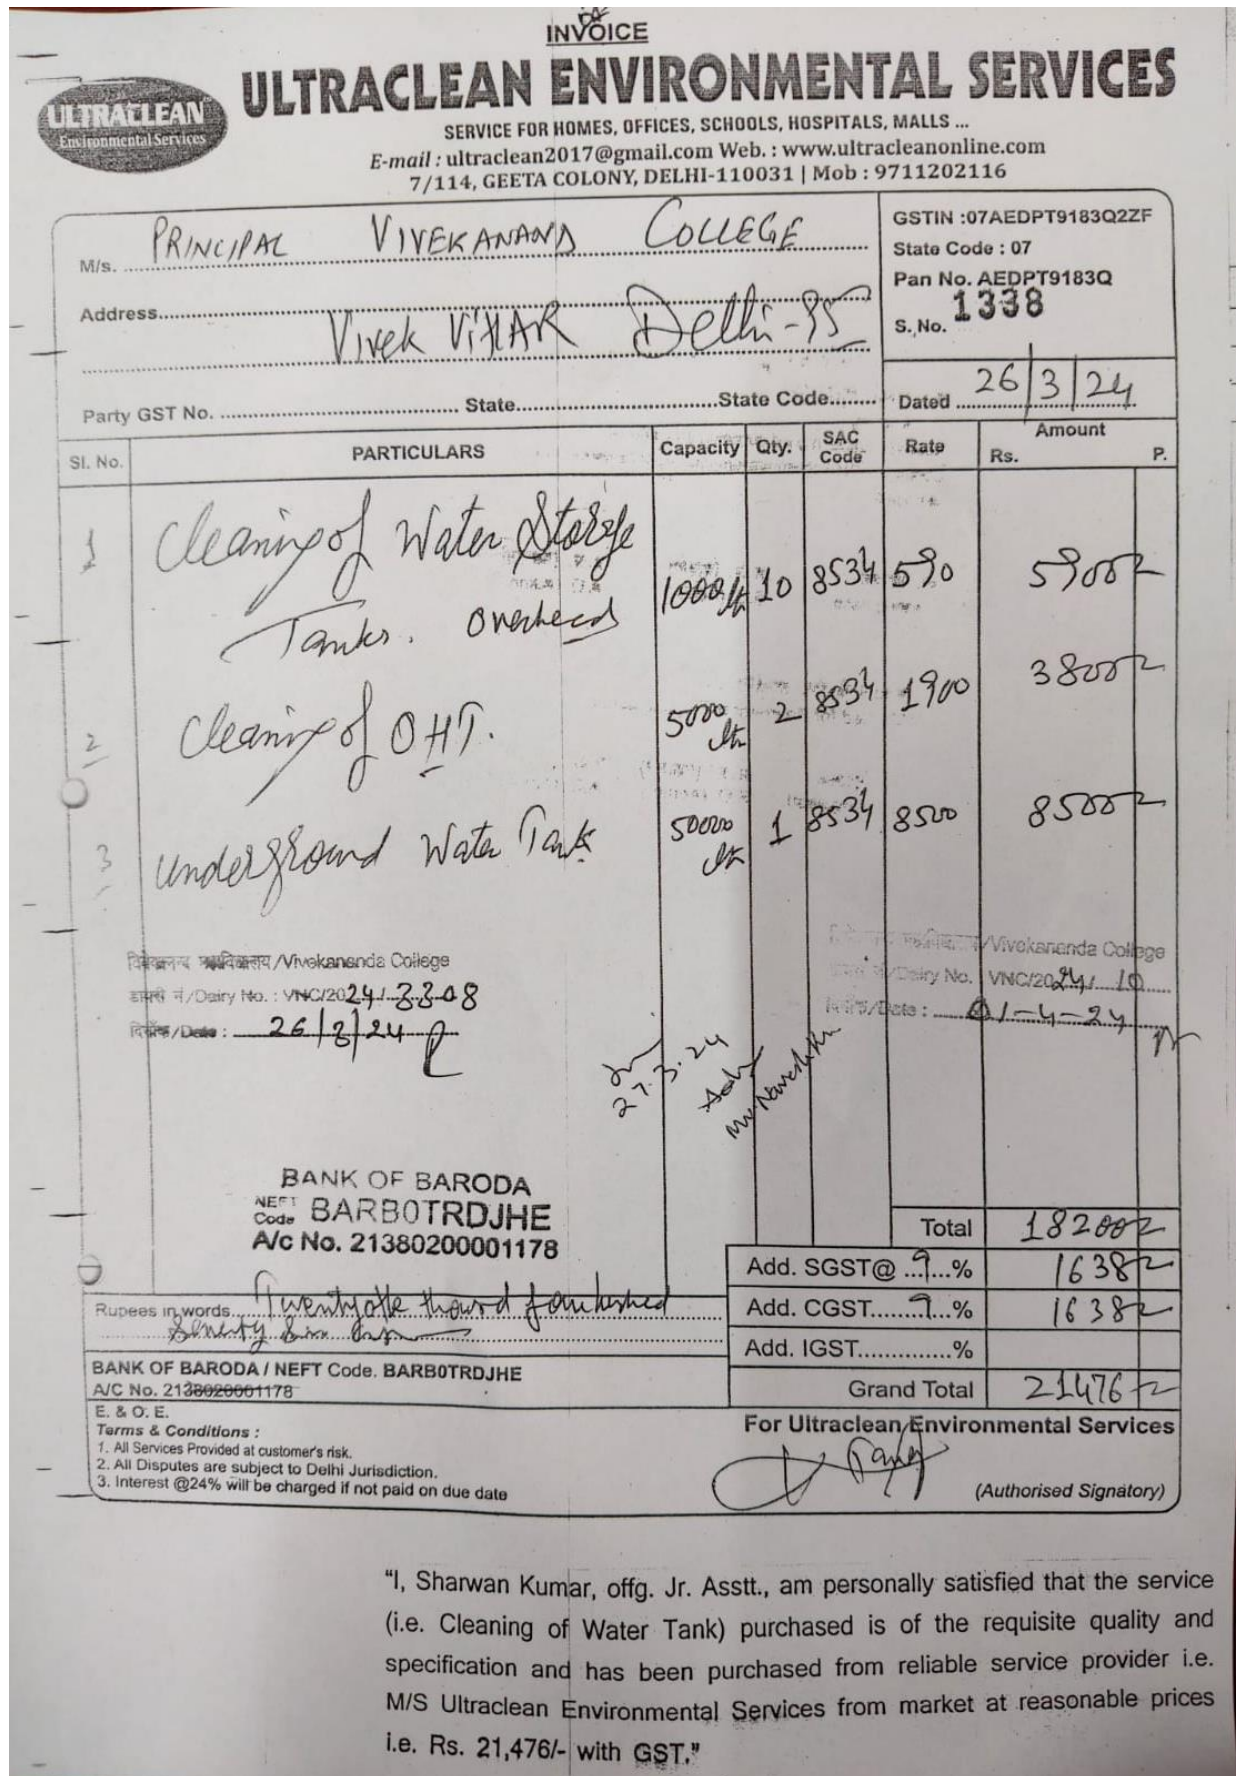 INVOICE
ULTRACLEAN
Environmental Services
ULTRACLEAN ENVIRONMENTAL SERVICES
SERVICE FOR HOMES, OFFICES, SCHOOLS, HOSPITALS, MALLS ...
E-mail : ultraclean2017@gmail.com Web. : www.ultracleanonline.com
7/114, GEETA COLONY, DELHI-110031 | Mob : 9711202116
M/s. PRINCIPAL VIVEKANAND COLLEGE
GSTIN :07AEDPT9183Q2ZF
State Code : 07
Pan No. AEDPT9183Q
S. No. 1338
Address
Vivek ViHAR Delhi-95
Party GST No. State State Code
Dated 26/3/24
Sl. No. PARTICULARS Capacity Qty. SAC Code Rate Amount Rs. P.
1 Cleaning of Water Storage Tanks. Overhead 1000 ltr 10 8534 590 5900
2 Cleaning of OHT. 5000 ltr 2 8534 1900 3800
3 Underground Water Tank 50000 ltr 1 8534 8500 8500
विवेकानन्द महाविद्यालय/Vivekananda College
डायरी नं/Dairy No. : VNC/2024/3308
दिनाँक/Date : 26/3/24
/Vivekananda College
/Dairy No. VNC/2024/10
/Date : 01-4-24
27.3.24
BANK OF BARODA
NEFT Code BARB0TRDJHE
A/c No. 21380200001178
Total 18200
Add. SGST@ 9 % 1638
Add. CGST 9 % 1638
Add. IGST %
Grand Total 21476
Rupees in words Twenty one thousand four hundred
Seventy Six
BANK OF BARODA / NEFT Code. BARB0TRDJHE
A/C No. 2138020001178
E. & O. E.
Terms & Conditions :
1. All Services Provided at customer's risk.
2. All Disputes are subject to Delhi Jurisdiction.
3. Interest @24% will be charged if not paid on due date
For Ultraclean Environmental Services
(Authorised Signatory)
"I, Sharwan Kumar, offg. Jr. Asstt., am personally satisfied that the service
(i.e. Cleaning of Water Tank) purchased is of the requisite quality and
specification and has been purchased from reliable service provider i.e.
M/S Ultraclean Environmental Services from market at reasonable prices
i.e. Rs. 21,476/- with GST."